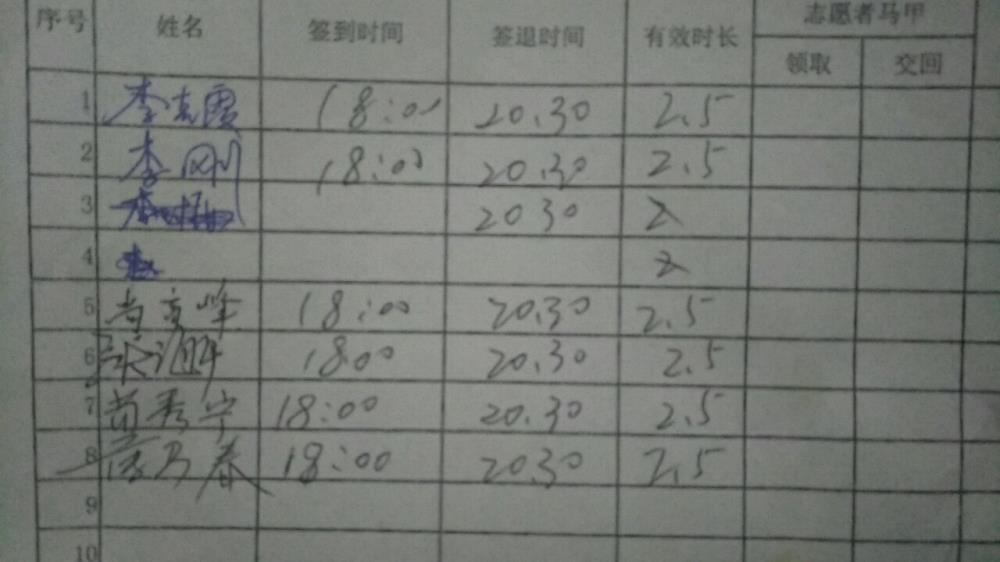 序号 姓名 签到时间 签退时间 有效时长 志愿者马甲
领取 交回
1 李克霞 18:00 20.30 2.5
2 李刚 18:00 20.30 2.5
3 2030 2
4 2
5 18:00 20.30 2.5
6 18:00 20.30 2.5
7 18:00 20.30 2.5
8 18:00 20.30 2.5
9
10